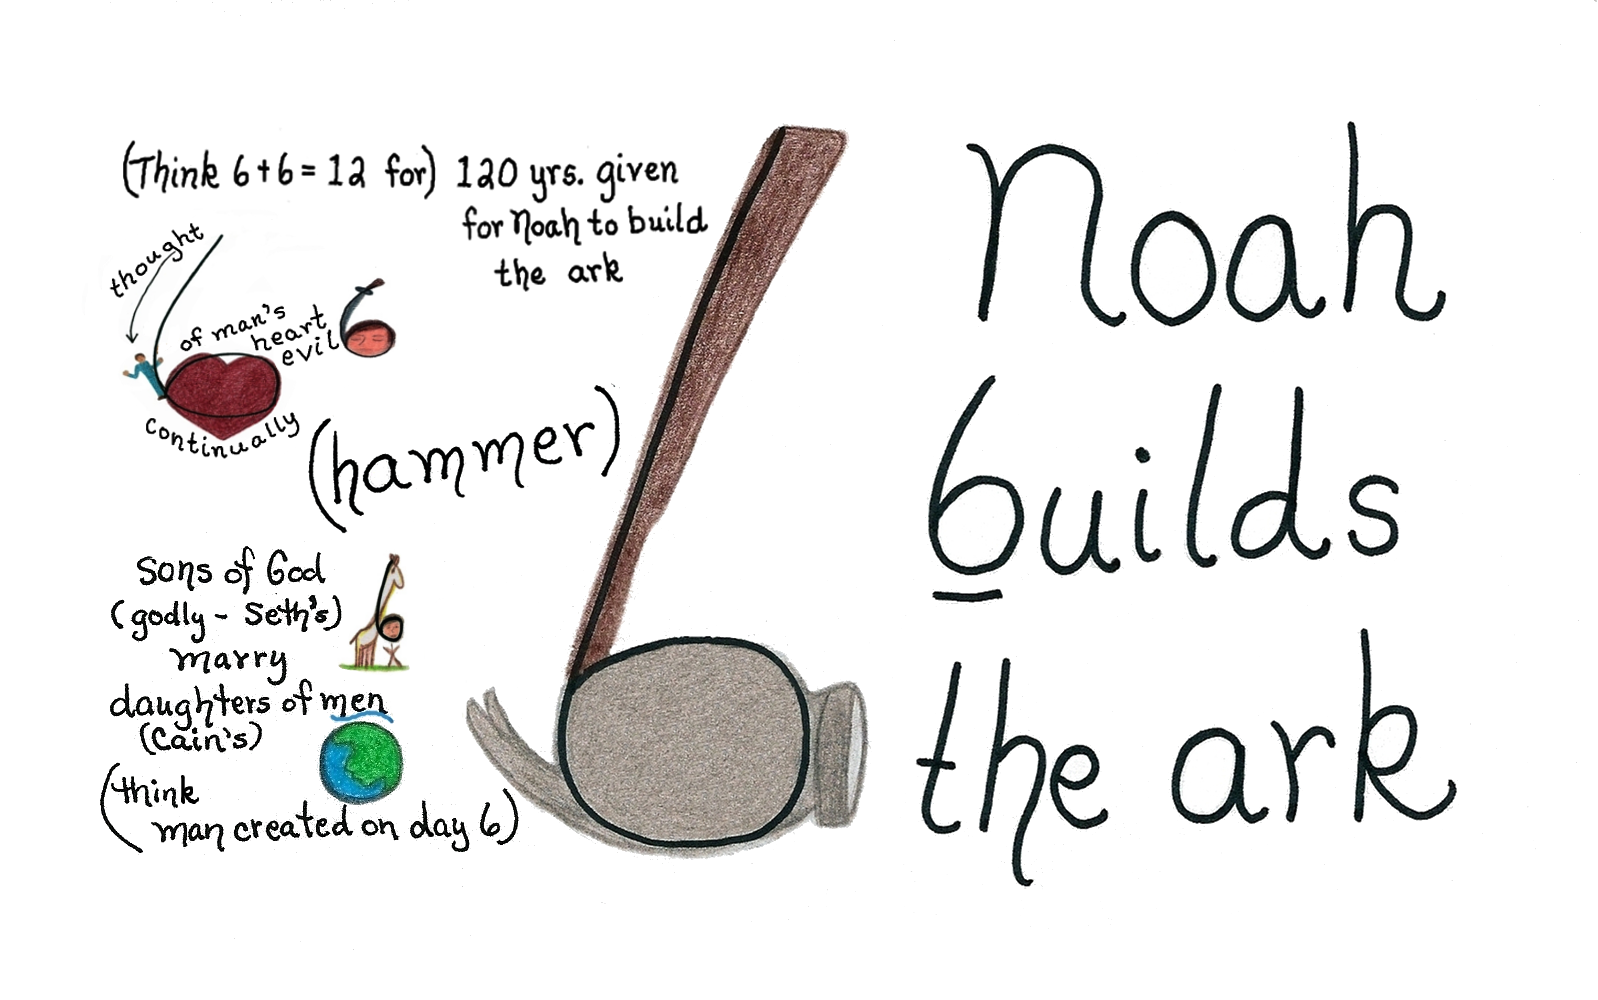 (Think 6+6=12 for) 120 yrs. given
for Noah to build
the ark
thought
of man's
heart
evil
continually
(hammer)
sons of God
(godly - Seth's)
marry
daughters of men
(Cain's)
(think
man created on day 6)
Noah
6uilds
the ark